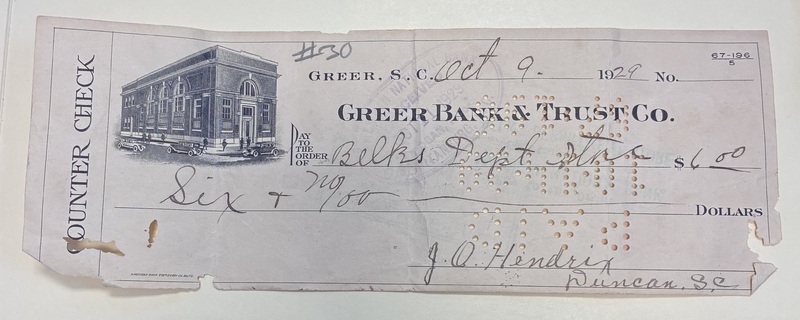 COUNTER CHECK
#30
67-196
5
GREER, S. C. Oct 9. 1929 No.
GREER BANK & TRUST CO.
PAY TO THE ORDER OF Belks Dept. Store $6.00
Six + no/00 DOLLARS
J. O. Hendrix
Duncan, S.C.
PAID